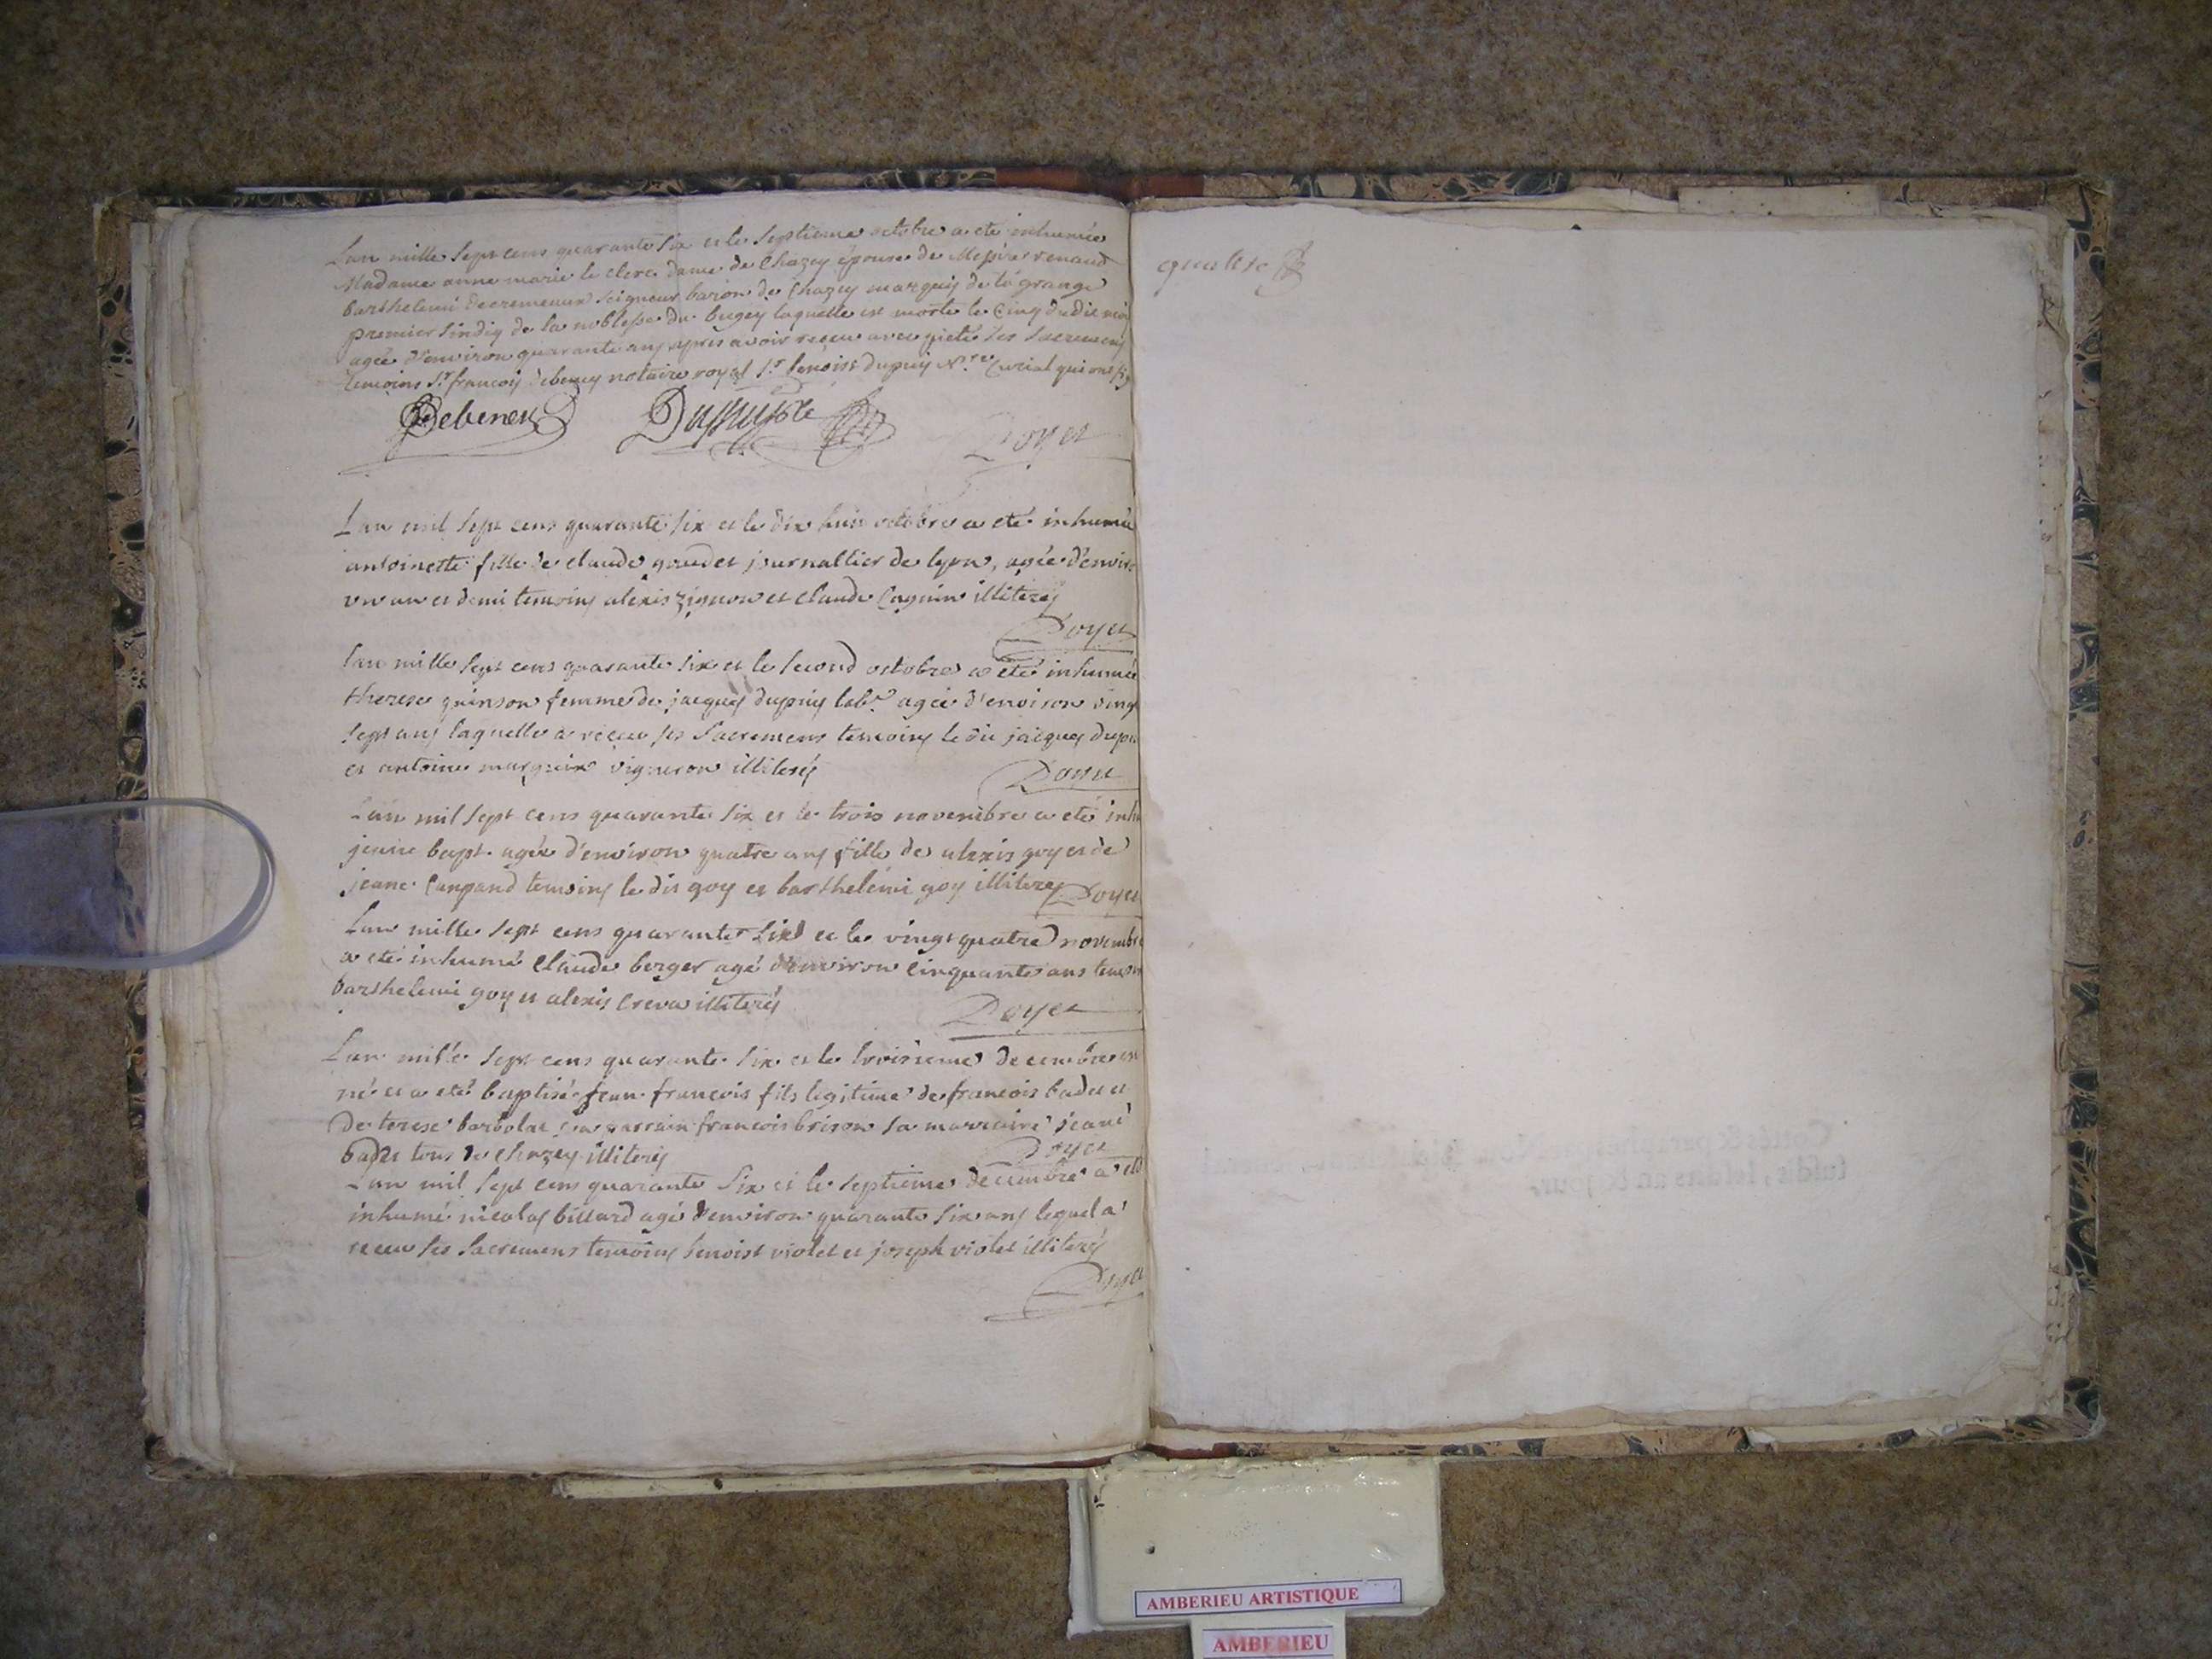 Lan mille sept cens quarante six et le septieme octobre a eté inhumée
Madame anne marie le clerc dame de Chazey épouse de Messire renaud
barthelemi decremeaux seigneur baron de Chazey marquis de la grange
premier sindiq de la noblesse du bugey laquelle est morte le cinq dudit moi
agée d'environ quarante ans apres avoir reçeu avec pieté ses sacremens
temoins Sr. francois debeney notaire royal Sr. benoist dupuy curial qui ont
Debeney Dupuy Doyet
Lan mil sept cens quarante six et le dix huit octobre a eté inhumée
antoinette fille de claude goudet journallier de lyon, agée d'enviro
un an et demi temoins alexis et claude illiterés
Doyet
lan mille sept cens quarante six et le second octobre a eté inhumée
therese quinson femme de jacques dupuis labr. agée d'environ vingt
sept ans laquelle a reçeu ses sacremens temoins le dit jacques dupu
et antoine marguin vigneron illiterés Doyet
Lan mil sept cens quarante six et le trois novembre a eté inhu
jeane bapt. agée d'environ quatre ans fille de alexis goy et de
jeane temoins le dit goy et barthelemi goy illiterés Doyet
Lan mille sept cens quarante six et le vingt quatre novembre
a eté inhumé Claude berger agé d'environ cinquante ans temoin
barthelemi goy et alexis creva illiterés Doyet
Lan mille sept cens quarante six et le troisieme decembre est
né et a eté baptisé jean francois fils legitime de francois badet et
De terese son parrain francois brison sa marraine jeane
badet tous de chazey illiterés Doyet
Lan mil sept cens quarante six et le septieme decembre a eté
inhumé nicolas billard agé d'environ quarante six ans lequel a
reçeu ses sacremens temoins benoist violet et joseph violet illiterés
Doyet
AMBERIEU ARTISTIQUE
AMBERIEU